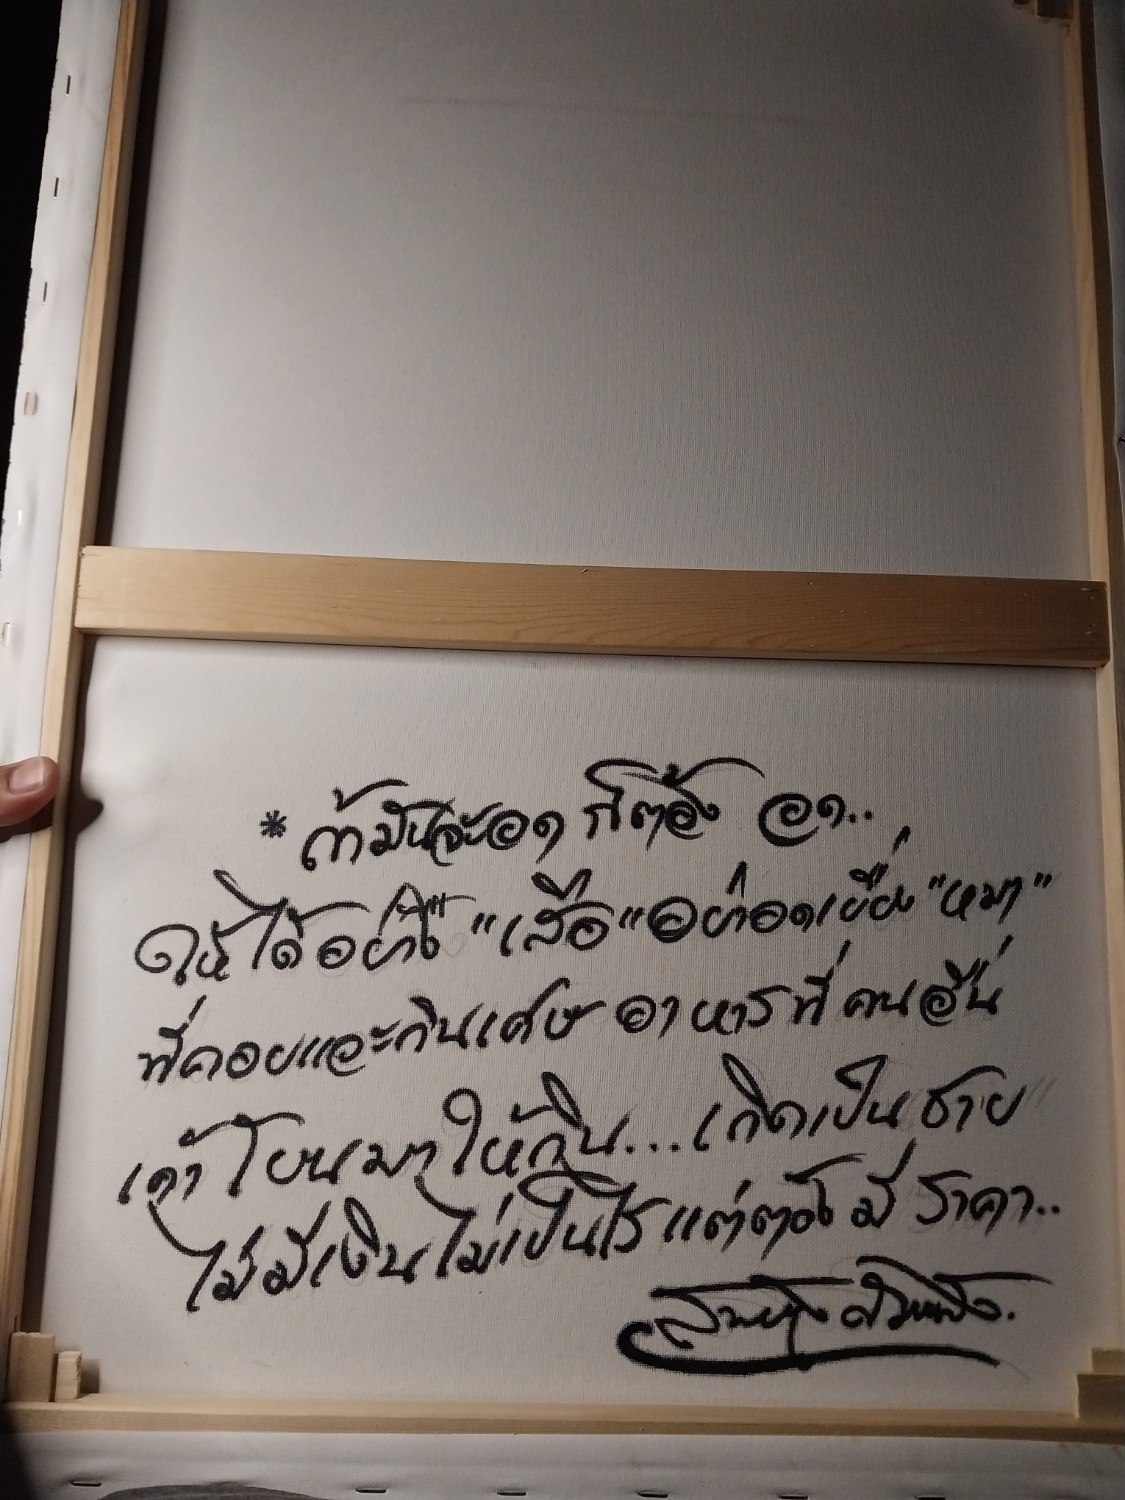 * ถ้ามันจะอดก็ต้อง อด..
ให้ได้อย่าง "เสือ" อย่าอดเยี่ยง "หมา"
ที่คอยแอะกินเศษ อาหารที่ คนอื่น
เค้า โยนมาให้กิน... เกิดเป็น ชาย
ไม่มีเงินไม่เป็นไร แต่ต้อง มี ราคา..